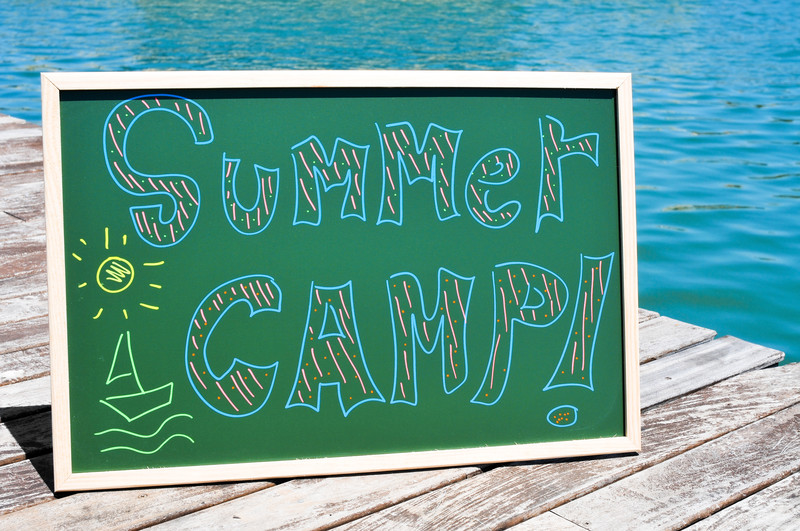 SuMMer
CAMP!